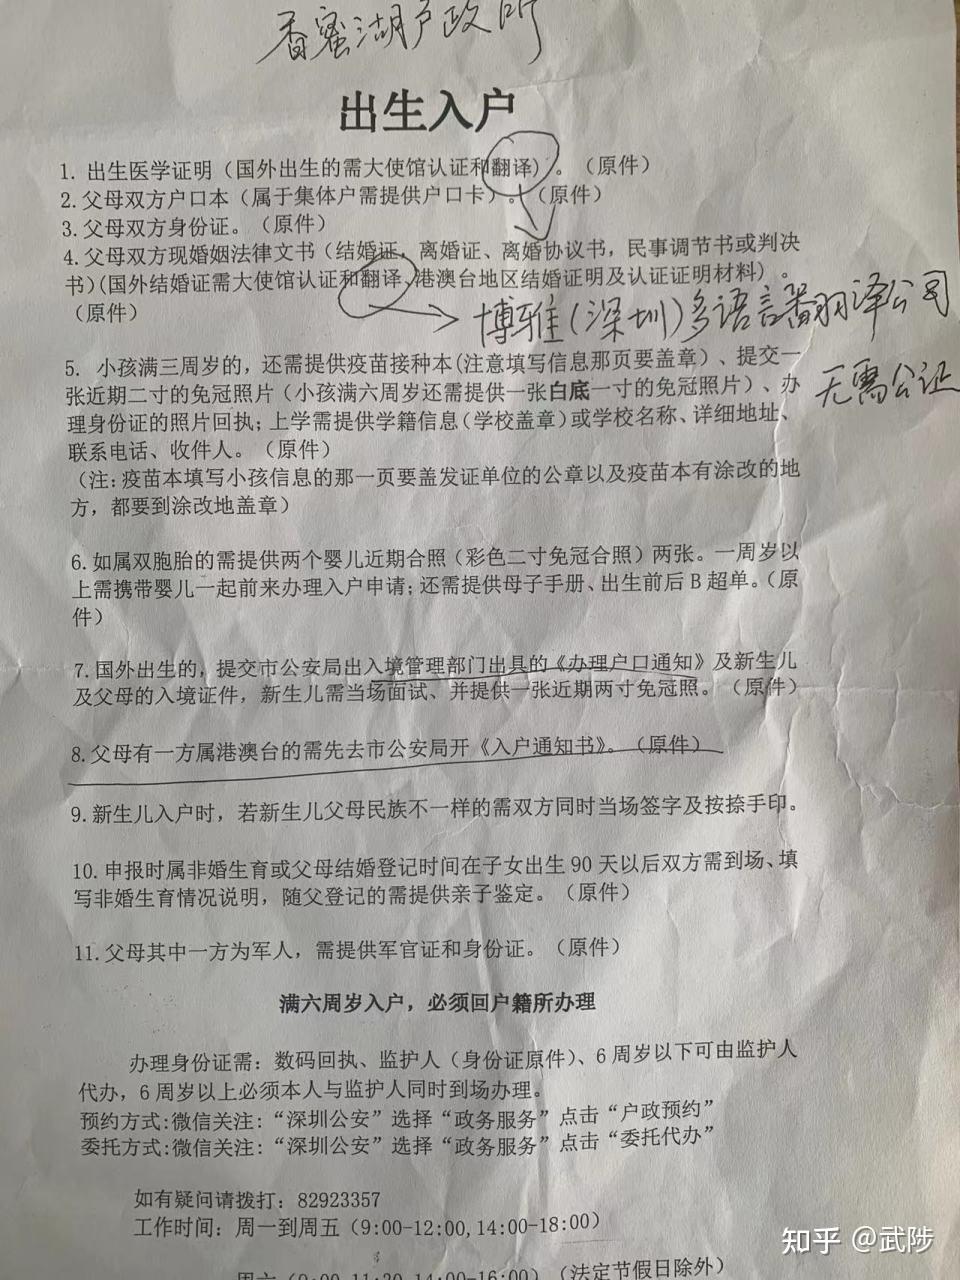 香蜜湖户政所
出生入户
1. 出生医学证明（国外出生的需大使馆认证和翻译）。（原件）
2.父母双方户口本（属于集体户需提供户口卡）。（原件）
3.父母双方身份证。（原件）
4.父母双方现婚姻法律文书（结婚证，离婚证、离婚协议书，民事调节书或判决
书）(国外结婚证需大使馆认证和翻译、港澳台地区结婚证明及认证证明材料）。
（原件）
博雅(深圳)多语言翻译公司
无需公证
5. 小孩满三周岁的，还需提供疫苗接种本(注意填写信息那页要盖章）、提交一
张近期二寸的免冠照片（小孩满六周岁还需提供一张白底一寸的免冠照片）、办
理身份证的照片回执；上学需提供学籍信息（学校盖章）或学校名称、详细地址、
联系电话、收件人。（原件）
（注：疫苗本填写小孩信息的那一页要盖发证单位的公章以及疫苗本有涂改的地
方，都要到涂改地盖章）
6.如属双胞胎的需提供两个婴儿近期合照（彩色二寸免冠合照）两张。一周岁以
上需携带婴儿一起前来办理入户申请；还需提供母子手册、出生前后 B 超单。（原
件）
7.国外出生的，提交市公安局出入境管理部门出具的《办理户口通知》及新生儿
及父母的入境证件，新生儿需当场面试、并提供一张近期两寸免冠照。（原件）
8.父母有一方属港澳台的需先去市公安局开《入户通知书》。（原件）
9.新生儿入户时，若新生儿父母民族不一样的需双方同时当场签字及按捺手印。
10.申报时属非婚生育或父母结婚登记时间在子女出生 90 天以后双方需到场、填
写非婚生育情况说明，随父登记的需提供亲子鉴定。（原件）
11.父母其中一方为军人，需提供军官证和身份证。（原件）
满六周岁入户，必须回户籍所办理
办理身份证需：数码回执、监护人（身份证原件）、6 周岁以下可由监护人
代办，6 周岁以上必须本人与监护人同时到场办理。
预约方式:微信关注：“深圳公安”选择“政务服务”点击“户政预约”
委托方式:微信关注：“深圳公安”选择“政务服务”点击“委托代办”
如有疑问请拨打：82923357
工作时间：周一到周五（9:00-12:00,14:00-18:00）
周六（9:00-11:30,14:00-16:00）（法定节假日除外）
知乎 @武陟